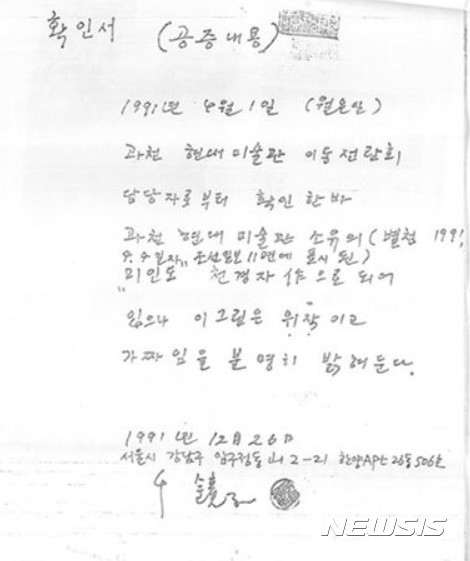 확인서 (공증내용)
1991년 4월 1일 (월요일)
과천 현대미술관 이동전람회
담당자로부터 확인한바
과천 현대미술관 소유의 (별첨 1991.
조선일보 11면에 표시된)
"미인도" 천경자 作으로 되어
있으나 이그림은 위작이고
가짜임을 분명히 밝혀둔다.
1991년 12月 26日
서울시 강남구 압구정동 산 2-21 한양APT 26동 506호
NEWSIS